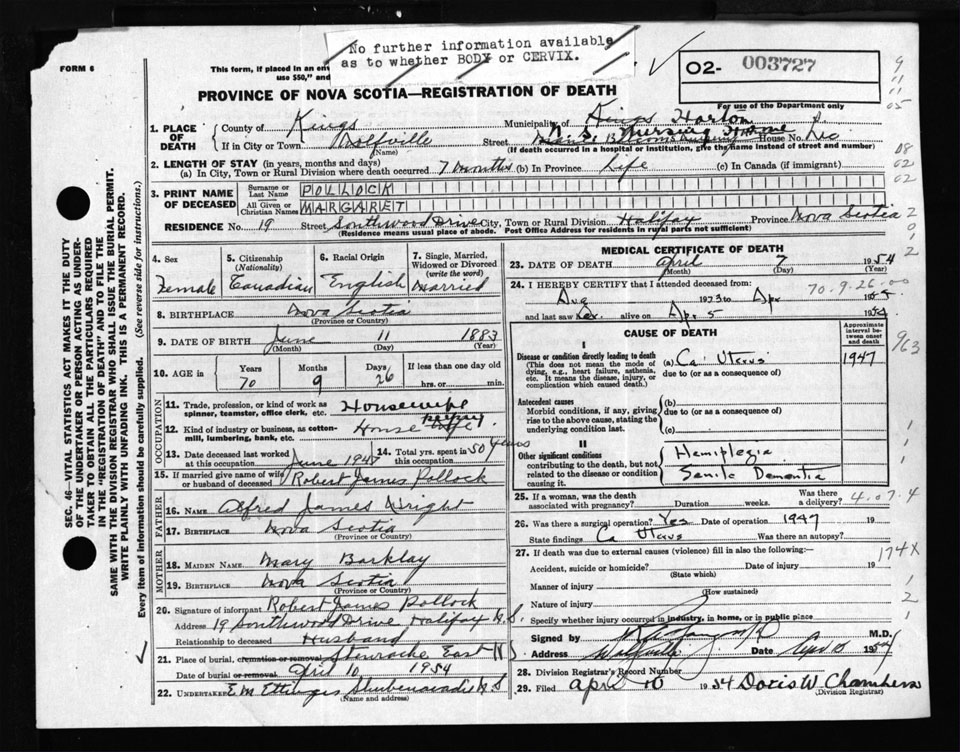 No further information available
as to whether BODY or CERVIX.
FORM 6
This form, if placed in an
use $50," and
02- 003727
PROVINCE OF NOVA SCOTIA—REGISTRATION OF DEATH
For use of the Department only
1. PLACE OF DEATH
County of Kings Municipality of Kings Horton
If in City or Town Wolfville Street Nursing Home House No.
(Name) (If death occurred in a hospital or institution, give the name instead of street and number)
2. LENGTH OF STAY (in years, months and days)
(a) In City, Town or Rural Division where death occurred 7 months (b) In Province Life (c) In Canada (if immigrant)
3. PRINT NAME OF DECEASED
Surname or Last Name POLLOCK
All Given or Christian Names MARGARET
RESIDENCE No. 19 Street Southwood Drive City, Town or Rural Division Halifax Province Nova Scotia
(Residence means usual place of abode. Post Office Address for residents in rural parts not sufficient)
4. Sex Female
5. Citizenship (Nationality) Canadian
6. Racial Origin English
7. Single, Married, Widowed or Divorced (write the word) Married
8. BIRTHPLACE Nova Scotia
(Province or Country)
9. DATE OF BIRTH June 11 1883
(Month) (Day) (Year)
10. AGE in Years 70 Months 9 Days 26 If less than one day old
hrs. or min.
OCCUPATION
11. Trade, profession, or kind of work as spinner, teamster, office clerk, etc. Housewife
12. Kind of industry or business, as cotton-mill, lumbering, bank, etc. House
13. Date deceased last worked at this occupation June 1947
14. Total yrs. spent in this occupation 50 years
15. If married give name of wife or husband of deceased Robert James Pollock
FATHER
16. NAME Alfred James Wright
17. BIRTHPLACE Nova Scotia
(Province or Country)
MOTHER
18. MAIDEN NAME Mary Barklay
19. BIRTHPLACE Nova Scotia
(Province or Country)
20. Signature of informant Robert James Pollock
Address 19 Southwood Drive Halifax N.S.
Relationship to deceased Husband
21. Place of burial, cremation or removal East NS
Date of burial or removal April 10 1954
22. UNDERTAKER E M Ettinger Shubenacadie N S
(Name and address)
MEDICAL CERTIFICATE OF DEATH
23. DATE OF DEATH April 7 1954
(Month) (Day) (Year)
24. I HEREBY CERTIFY that I attended deceased from: 70.9.26.00
Aug to Apr
and last saw her alive on Apr 5 1954
CAUSE OF DEATH
Approximate interval between onset and death
I
Disease or condition directly leading to death (a) Ca Uterus 1947
(This does not mean the mode of dying, e.g., heart failure, asthenia, etc. It means the disease, injury, or complication which caused death.)
due to (or as a consequence of)
Antecedent causes (b)
Morbid conditions, if any, giving rise to the above cause, stating the underlying condition last.
due to (or as a consequence of)
(c)
II
Other significant conditions contributing to the death, but not related to the disease or condition causing it.
Hemiplegia
Senile Dementia
25. If a woman, was the death associated with pregnancy? Duration weeks. Was there a delivery? 4.07.4
26. Was there a surgical operation? Yes Date of operation 1947 19
State findings Ca Uterus Was there an autopsy?
27. If death was due to external causes (violence) fill in also the following:—
174X
Accident, suicide or homicide? Date of injury 19
(State which)
Manner of injury
(How sustained)
Nature of injury
Specify whether injury occurred in industry, in home, or in public place
Signed by M.D.
Address Wolfville Date April 10 1954
28. Division Registrar's Record Number
29. Filed April 10 1954 Doris W. Chambers
(Division Registrar)
SEC. 46—VITAL STATISTICS ACT MAKES IT THE DUTY
OF THE UNDERTAKER OR PERSON ACTING AS UNDER-
TAKER TO OBTAIN ALL THE PARTICULARS REQUIRED
IN THE "REGISTRATION OF DEATH" AND TO FILE THE
SAME WITH THE DIVISION REGISTRAR WHO SHALL ISSUE THE BURIAL PERMIT.
WRITE PLAINLY WITH UNFADING INK. THIS IS A PERMANENT RECORD.
Every item of information should be carefully supplied. (See reverse side for instructions.)
9
11
05
08
02
02
2
0
1
2
963
1
1
1
2
1